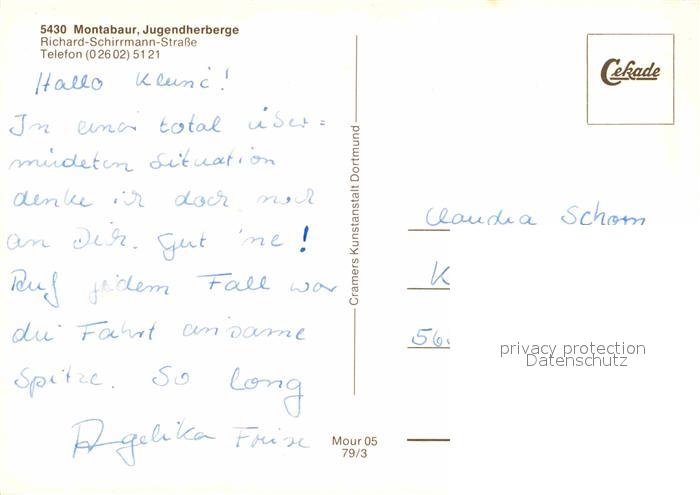 5430 Montabaur, Jugendherberge
Richard-Schirrmann-Straße
Telefon (0 26 02) 51 21
Hallo
In einer total über=
müdeten Situation
denke ich doch noch
an Dich. gut 'ne!
Auf jedem Fall war
die Fahrt einsame
Spitze. So long
Angelika
Cramers Kunstanstalt Dortmund
Mour 05
79/3
Cekade
Claudia Schom
K
56.
privacy protection
Datenschutz